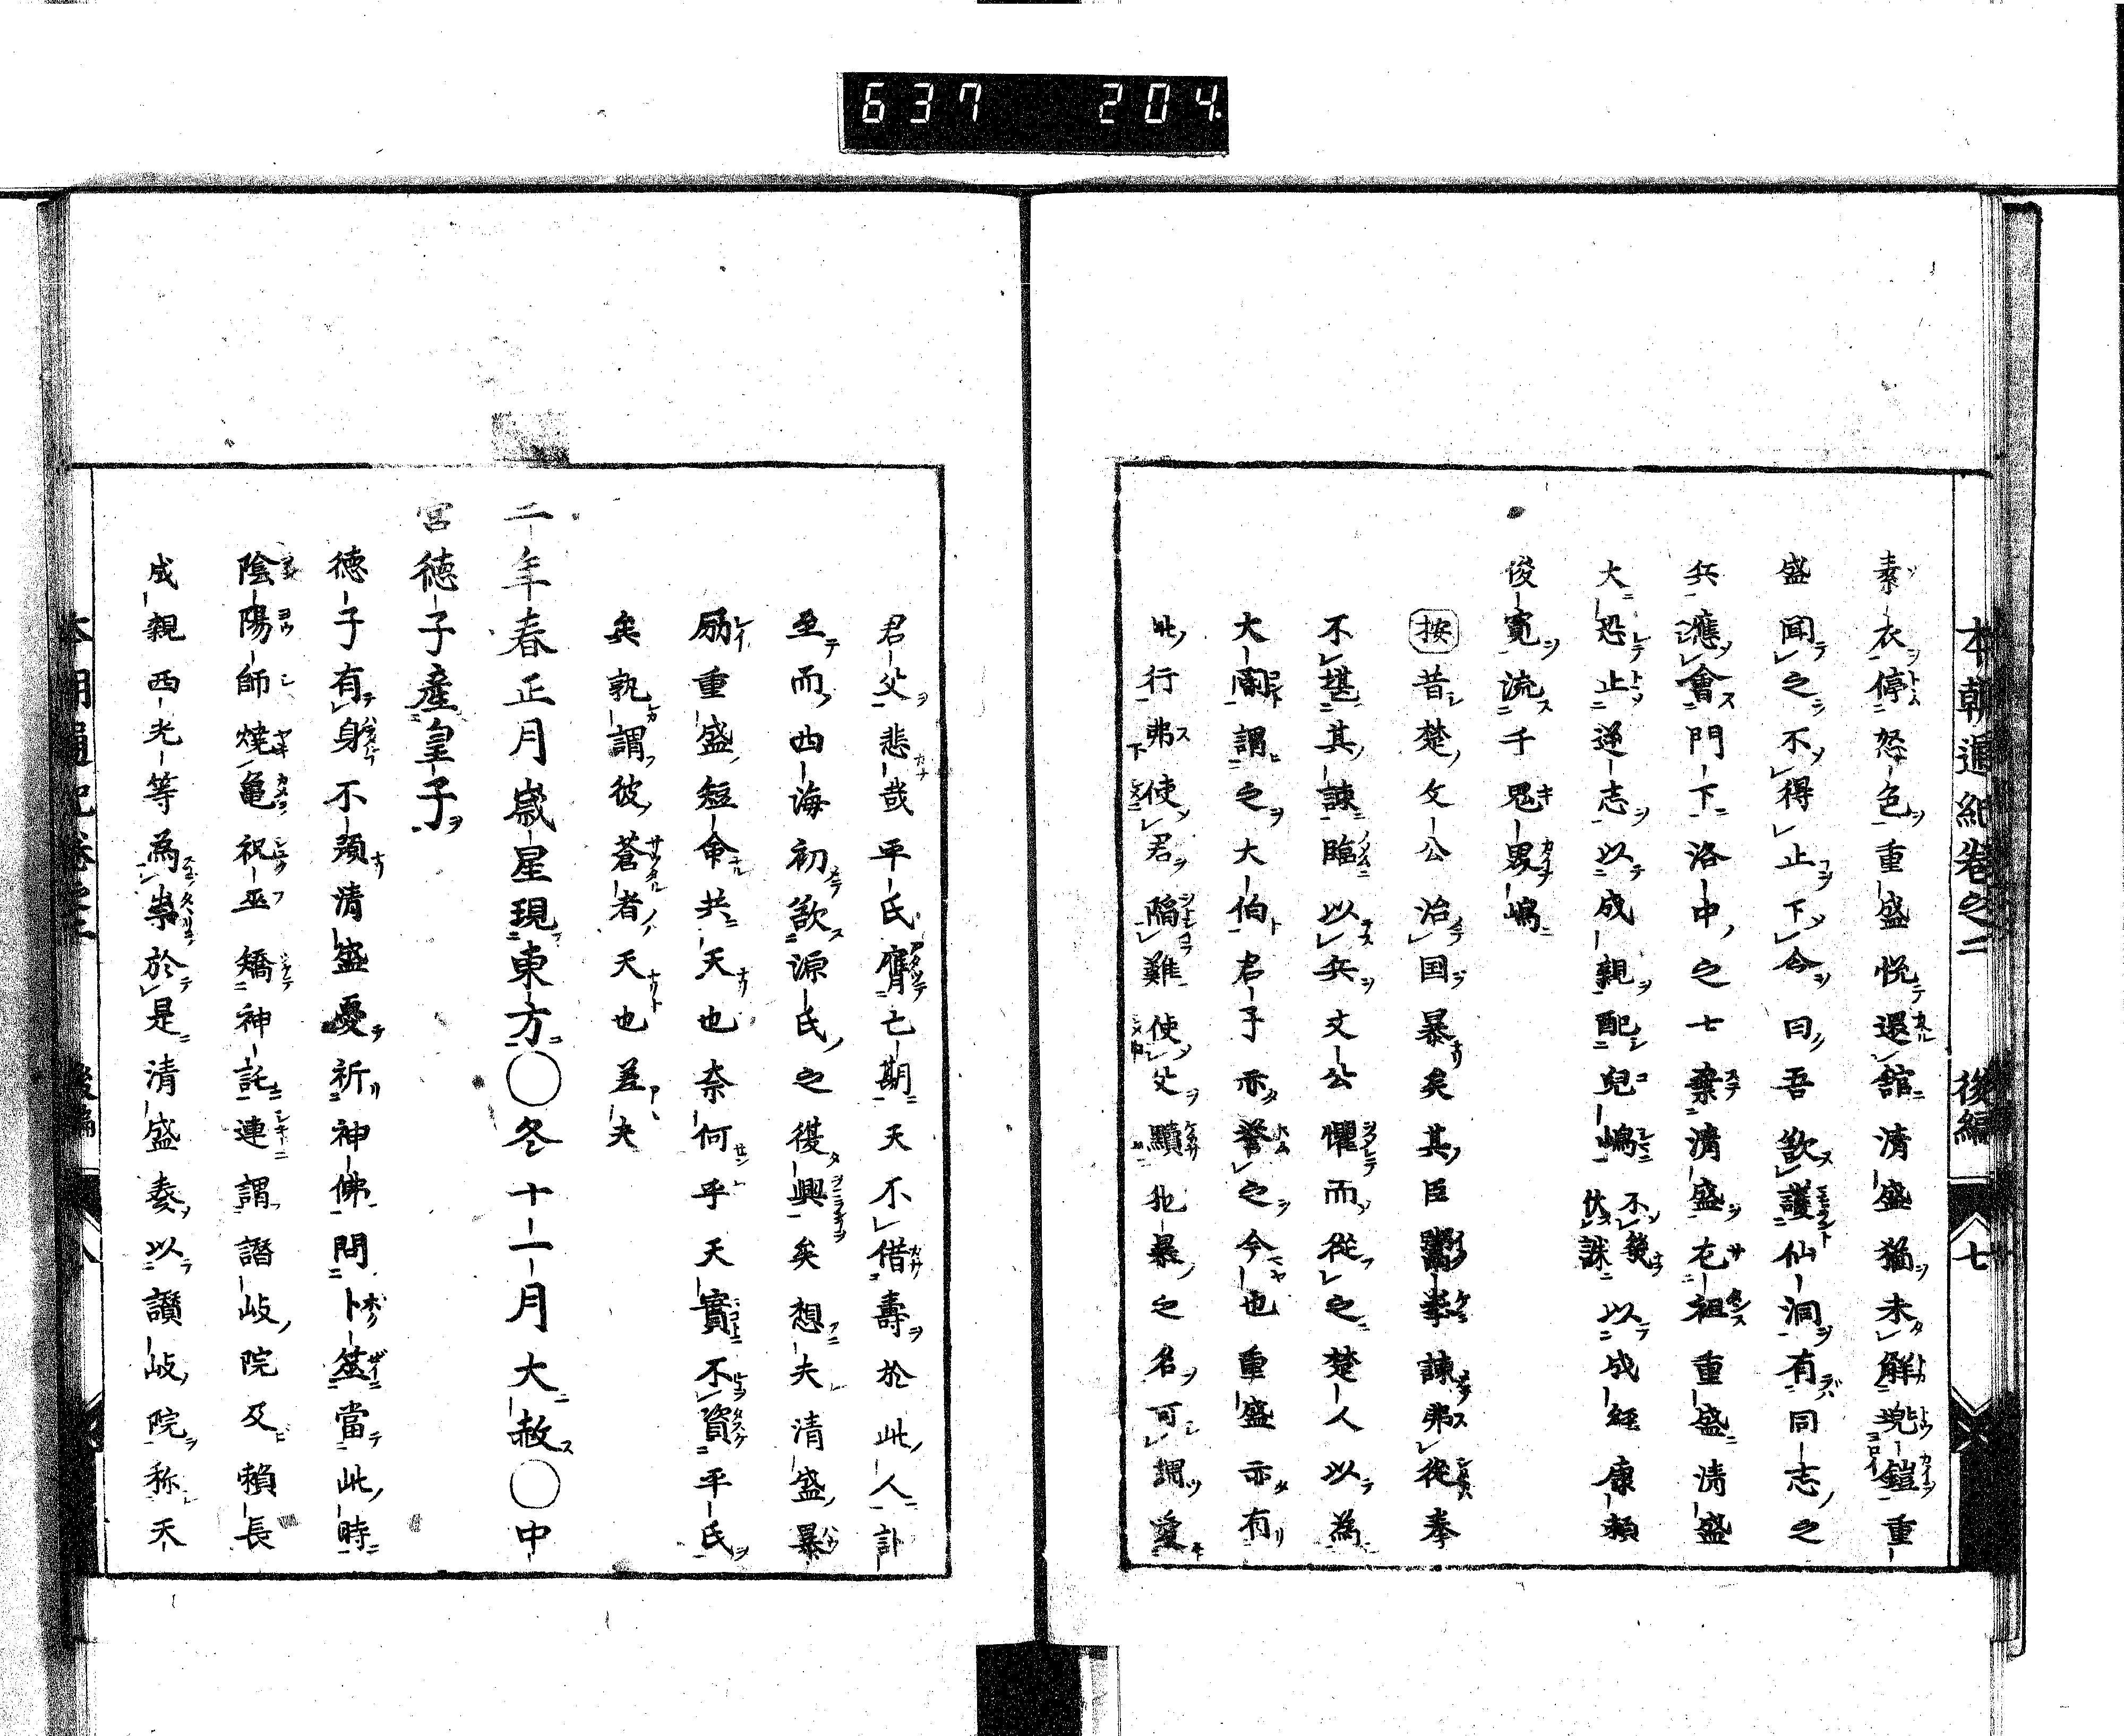 637 204
本朝通紀卷之二 後編 七
素衣停怒色重盛悦還舘清盛猶未觧兠鎧重
盛聞之不得止下令曰吾欲護仙洞有同志之
兵應會門下洛中之士棄清盛屯祖重盛清盛
大恐止逆志以成親配兒嶋不幾伏誅以成経康頼
俊寛流千鬼男嶋
按昔楚文公治国暴矣其臣鬻拳諫弗從拳
不堪其諫臨以兵文公懼而從之楚人以為
大閽謂之大伯君子亦誉之今也重盛亦有
此行弗使君陥難使父黷叛暴之名可謂愛
君父悲哉平氏膺亡期天不借壽於此人訃
至而西海初欲源氏之復興矣想夫清盛暴
励重盛短命共天也奈何乎天實不資平氏
矣孰謂彼蒼者天也差夫
二年春正月歳星現東方〇冬十一月大赦〇中
宮徳子産皇子
徳子有身不穎清盛憂祈神佛問卜筮當此時
陰陽師燒亀祝巫矯神託連謂譖岐院及頼長
成親西光等為祟於是清盛奏以讃岐院称天